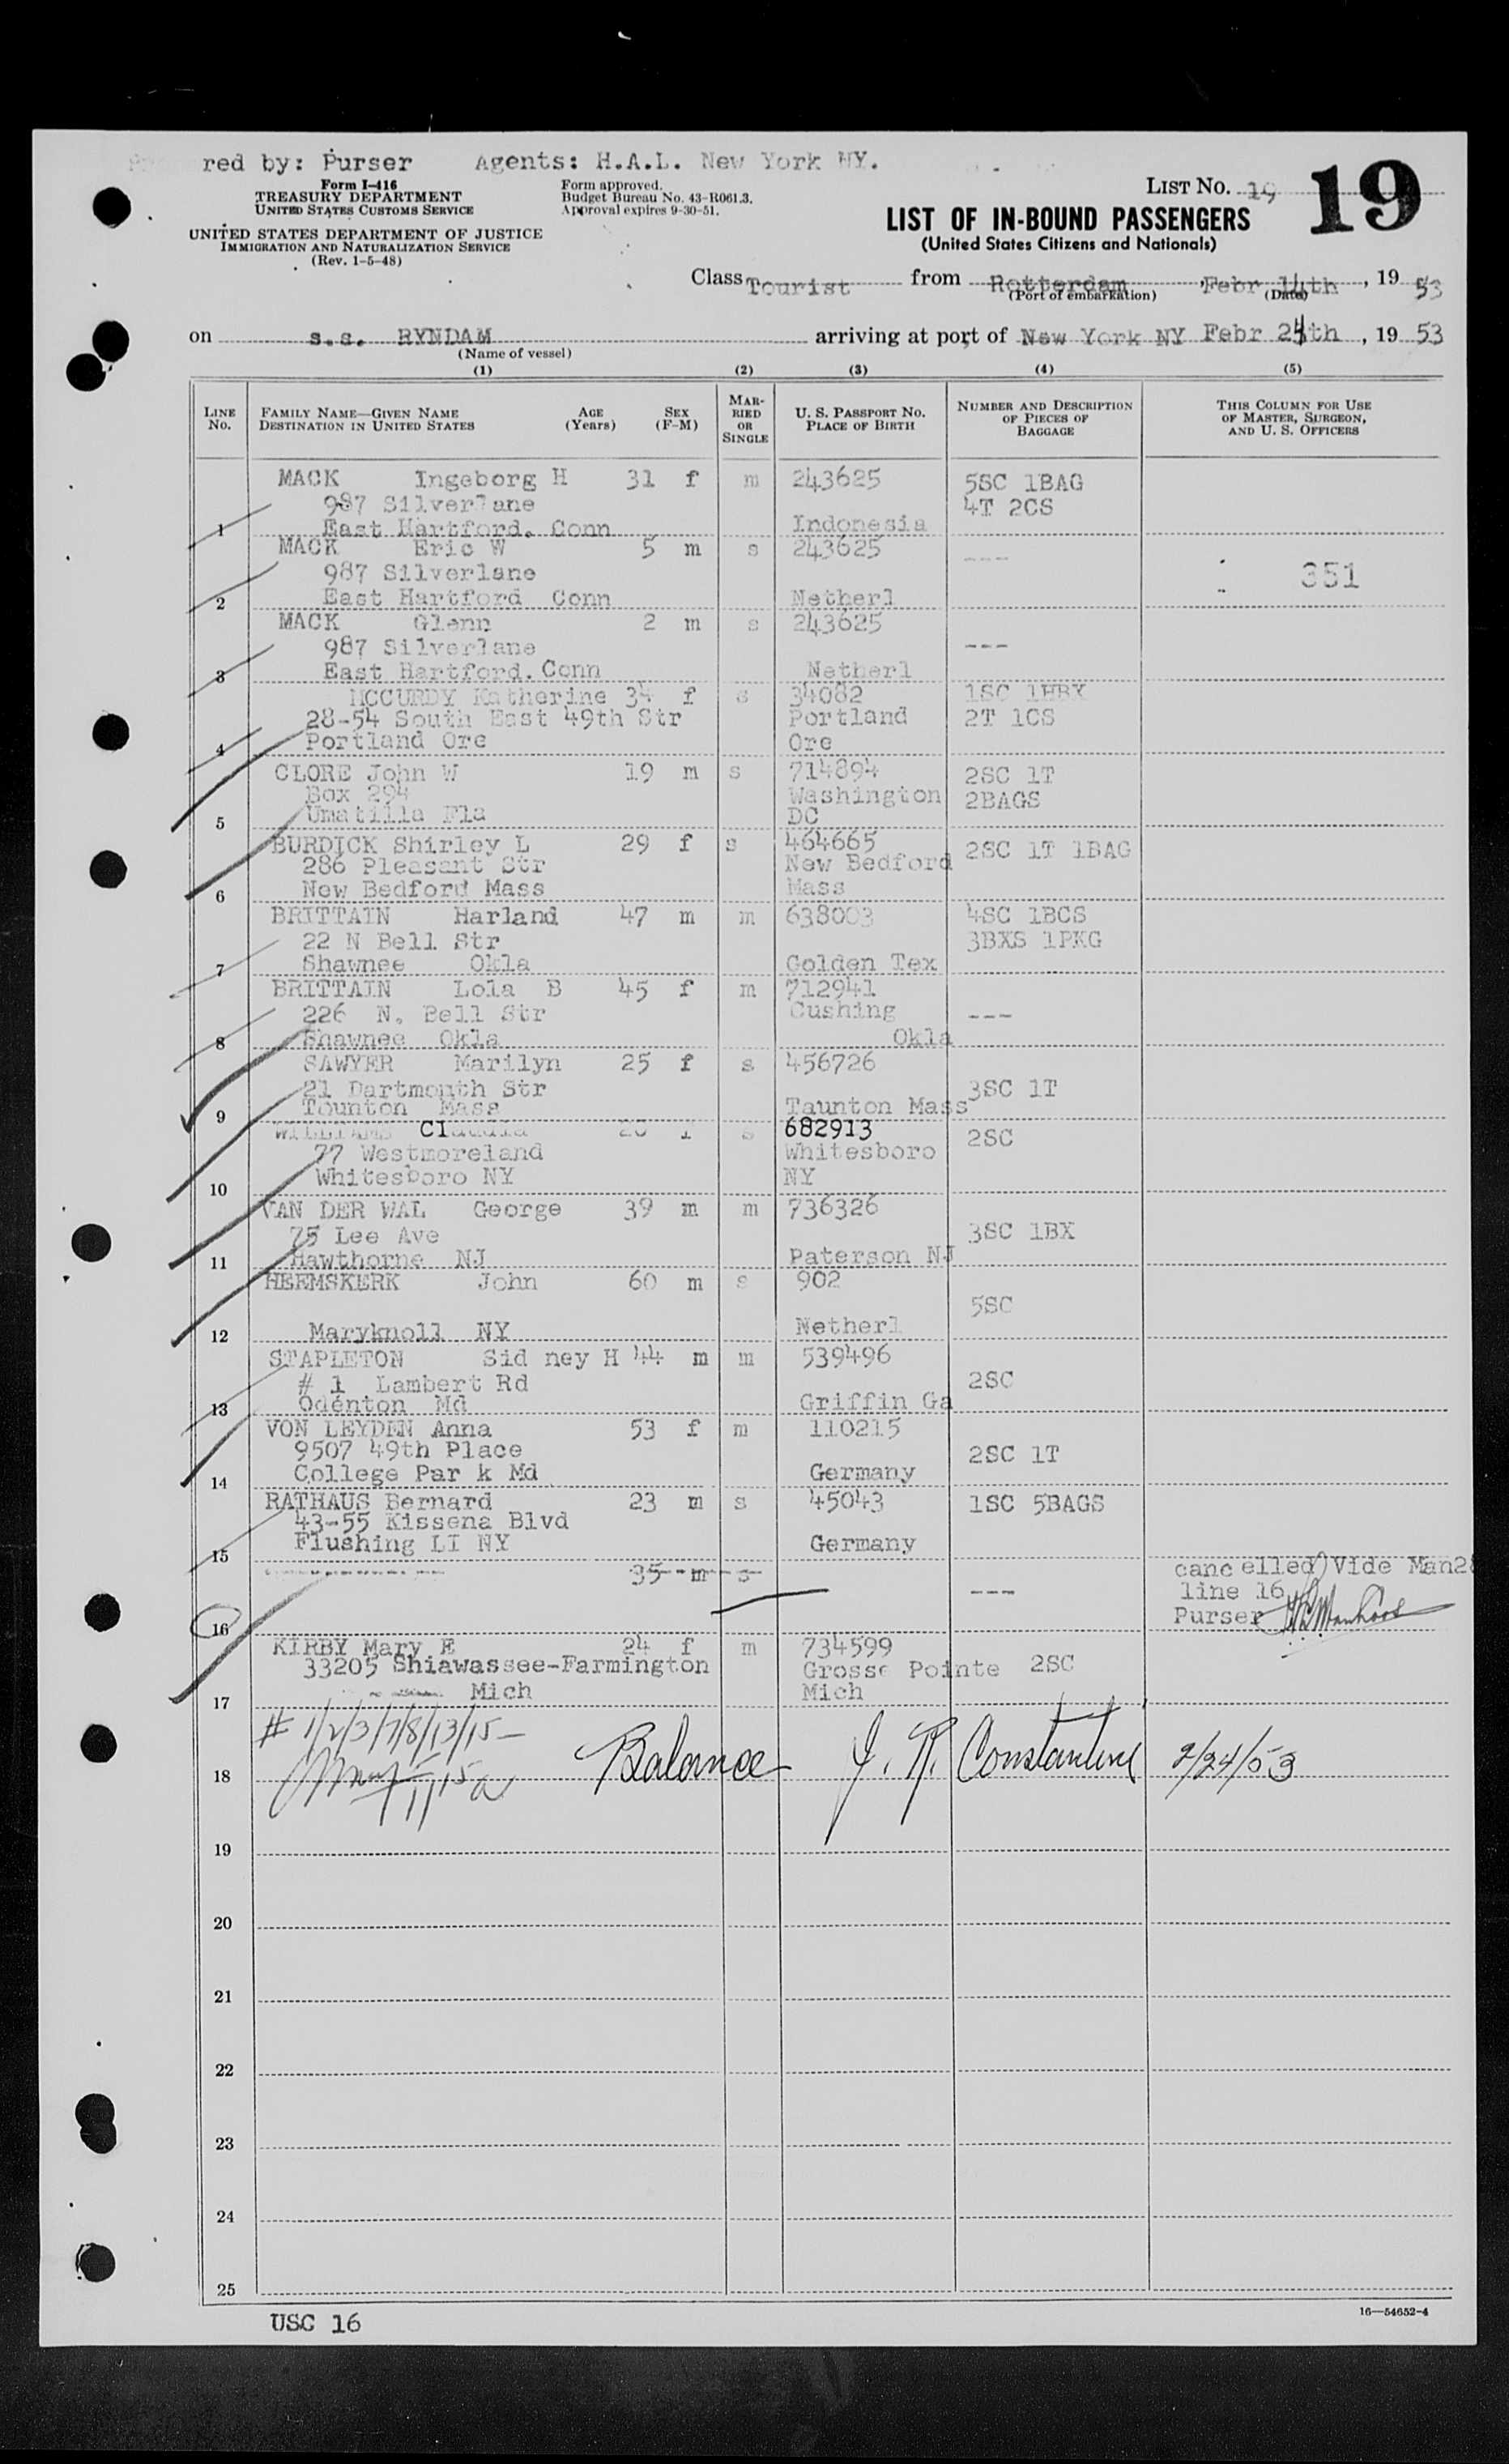 red by: Purser Agents: H.A.L. New York NY.
Form I-416
TREASURY DEPARTMENT
UNITED STATES CUSTOMS SERVICE
UNITED STATES DEPARTMENT OF JUSTICE
IMMIGRATION AND NATURALIZATION SERVICE
(Rev. 1-5-48)
Form approved.
Budget Bureau No. 43-R061.3.
Approval expires 9-30-51.
LIST NO. 19 19
LIST OF IN-BOUND PASSENGERS
(United States Citizens and Nationals)
Class Tourist from Rotterdam, Febr 14th, 19 53
(Port of embarkation) (Date)
on s.s. RYNDAM arriving at port of New York NY Febr 24th, 19 53
(Name of vessel)
(1) (2) (3) (4) (5)
LINE NO. FAMILY NAME—GIVEN NAME DESTINATION IN UNITED STATES AGE (Years) SEX (F-M) MARRIED OR SINGLE U. S. PASSPORT NO. PLACE OF BIRTH NUMBER AND DESCRIPTION OF PIECES OF BAGGAGE THIS COLUMN FOR USE OF MASTER, SURGEON, AND U. S. OFFICERS
MACK Ingeborg H 31 f m 243625 5SC 1BAG
987 Silverlane 4T 2CS
1 East Hartford. Conn Indonesia
MACK Eric W 5 m s 243625 ---
987 Silverlane 351
2 East Hartford Conn Netherl
MACK Glenn 2 m s 243625
987 Silverlane ---
3 East Hartford. Conn Netherl
MCCURDY Katherine 34 f s 34082 1SC 1HBX
28-54 South East 49th Str Portland 2T 1CS
4 Portland Ore Ore
CLORE John W 19 m s 714894 2SC 1T
Box 294 Washington 2BAGS
5 Umatilla Fla DC
BURDICK Shirley L 29 f s 464665
286 Pleasant Str New Bedford 2SC 1T 1BAG
6 New Bedford Mass Mass
BRITTAIN Harland 47 m m 638003 4SC 1BCS
22 N Bell Str 3BXS 1PKG
7 Shawnee Okla Golden Tex
BRITTAIN Lola B 45 f m 712941
226 N. Bell Str Cushing ---
8 Shawnee Okla Okla
SAWYER Marilyn 25 f s 456726
21 Dartmouth Str 3SC 1T
9 Tounton Mass Taunton Mass
WILLIAMS Claudia s 682913 2SC
77 Westmoreland Whitesboro
10 Whitesboro NY NY
VAN DER WAL George 39 m m 736326
75 Lee Ave 3SC 1BX
11 Hawthorne NJ Paterson NJ
HEEMSKERK John 60 m s 902
5SC
12 Maryknoll NY Netherl
STAPLETON Sid ney H 44 m m 539496
# 1 Lambert Rd 2SC
13 Odenton Md Griffin Ga
VON LEYDEN Anna 53 f m 110215
9507 49th Place 2SC 1T
14 College Par k Md Germany
RATHAUS Bernard 23 m s 45043 1SC 5BAGS
43-55 Kissena Blvd
15 Flushing LI NY Germany
35 m s --- canc elled) Vide Man
line 16
16 Purser
KIRBY Mary E 24 f m 734599
33205 Shiawassee-Farmington Grosse Pointe 2SC
17 Mich Mich
# 1/2/3/7/8/13/15-
18 Balance J. R. Constantine 2/24/53
19
20
21
22
23
24
25
USC 16
16—54652-4